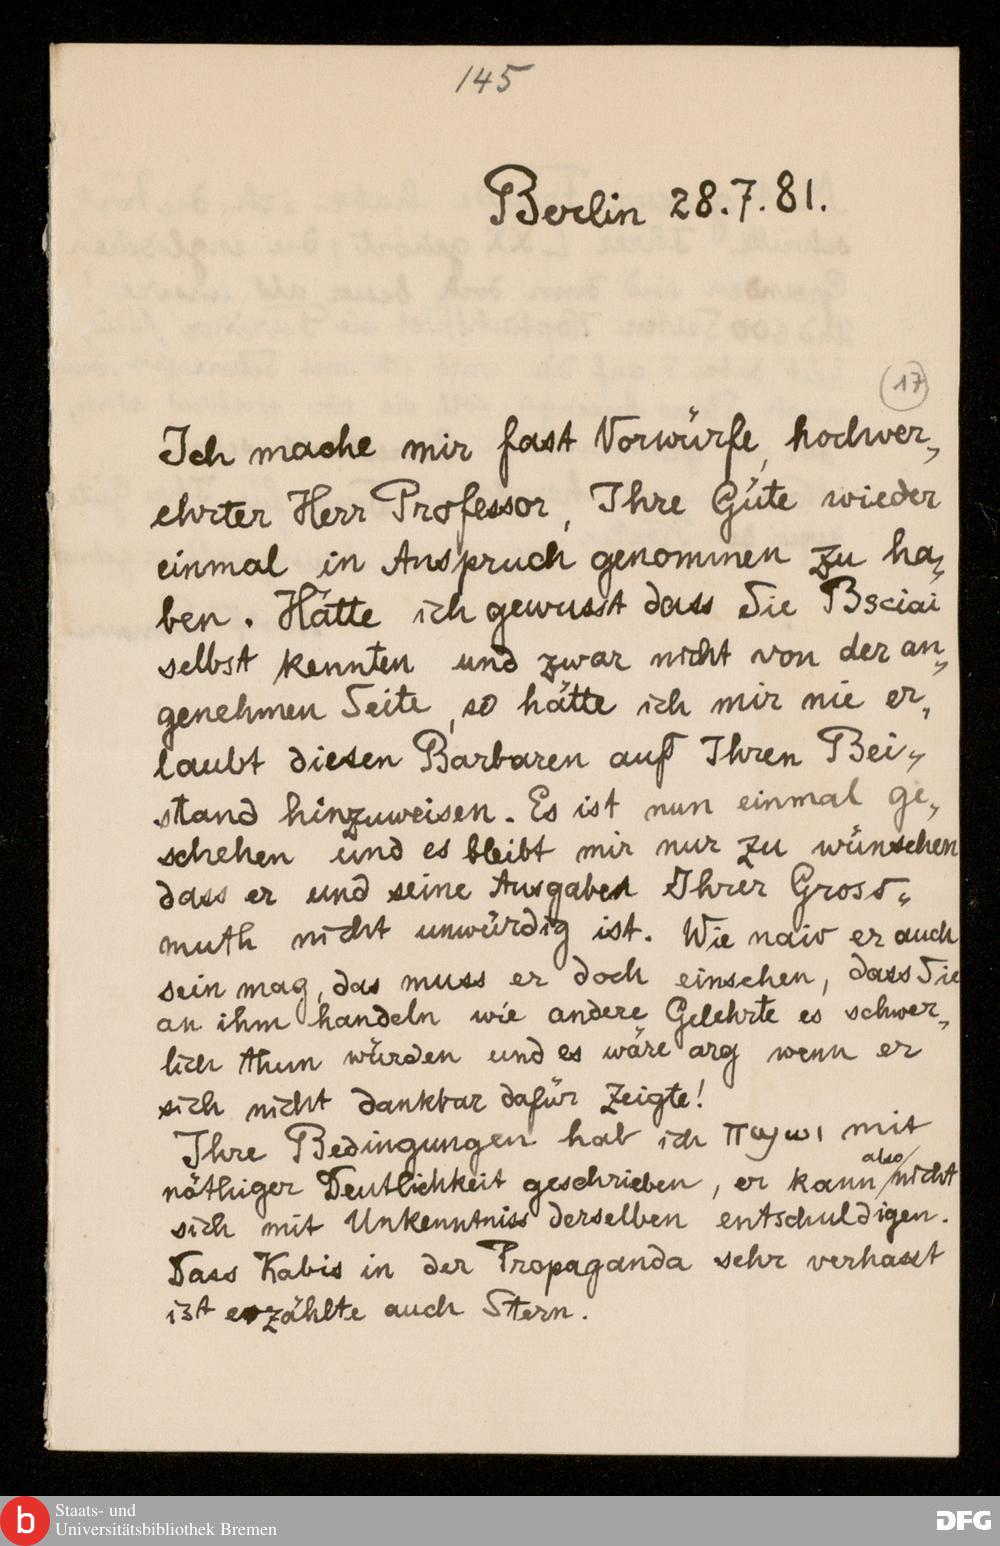 145
Berlin 28.7.81.
17
Ich mache mir fast Vorwürfe, hochver„
ehrter Herr Professor, Ihre Güte wieder
einmal in Anspruch genommen zu ha„
ben. Hätte ich gewusst dass Sie Bsciai
selbst kennten und zwar nicht von der an„
genehmen Seite, so hätte ich mir nie er„
laubt diesen Barbaren auf Ihren Bei„
stand hinzuweisen. Es ist nun einmal ge„
schehen und es bleibt mir nur zu wünschen
dass er und seine Ausgaben Ihrer Gross„
muth nicht unwürdig ist. Wie naiv er auch
sein mag, das muss er doch einsehen, dass Sie
an ihm handeln wie andere Gelehrte es schwer„
lich thun würden und es wäre arg wenn er
sich nicht dankbar dafür zeigte!
Ihre Bedingungen hab ich ⲡⲁϣⲱⲓ mit
nöthiger Deutlichkeit geschrieben, er kann also nicht
sich mit Unkenntniss derselben entschuldigen.
Dass Kabis in der Propaganda sehr verhasst
ist erzählte auch Stern.
b
Staats- und
Universitätsbibliothek Bremen
DFG